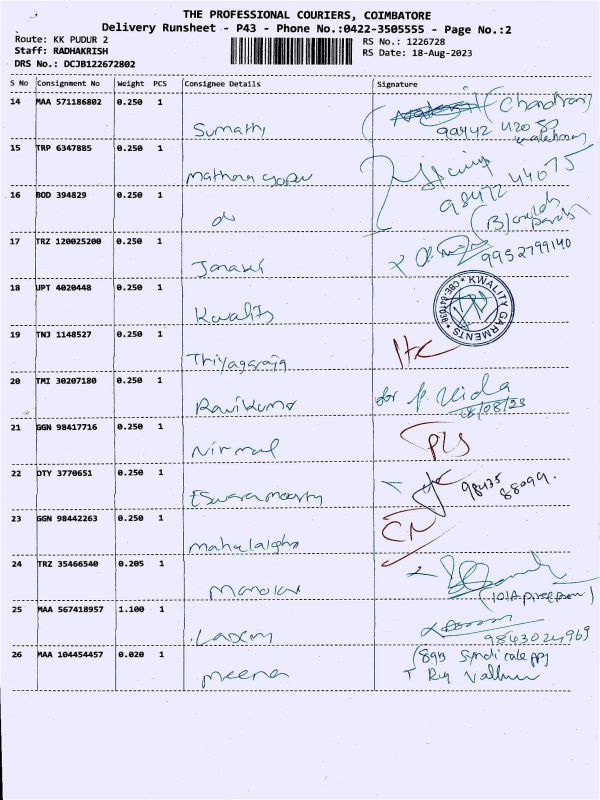 THE PROFESSIONAL COURIERS, COIMBATORE
Delivery Runsheet - P43 - Phone No.:0422-3505555 - Page No.:2
Route: KK PUDUR 2
RS No.: 1226728
Staff: RADHAKRISH
RS Date: 18-Aug-2023
DRS No.: DCJB122672802
S No Consignment No Weight PCS Consignee Details Signature
14 MAA 571186802 0.250 1
Sumathi
(Chandran)
99442 420 50
15 TRP 6347885 0.250 1
98472 44075
16 BOD 394829 0.250 1
do
17 TRZ 120025200 0.250 1
Janaki
9952799140
18 UPT 4020448 0.250 1
Kwality
KWALITY GARMENTS
CBE-641038
19 TNJ 1148527 0.250 1
Thiyagaraja
20 TMI 30207180 0.250 1
Ravikumar
18/08/23
21 GGN 98417716 0.250 1
Nirmal
22 DTY 3770651 0.250 1
Eswaramoorthy
98435
88099.
23 GGN 98442263 0.250 1
CN
24 TRZ 35466540 0.205 1
25 MAA 567418957 1.100 1
Laxmi
9843024969
26 MAA 104454457 0.020 1
Meena